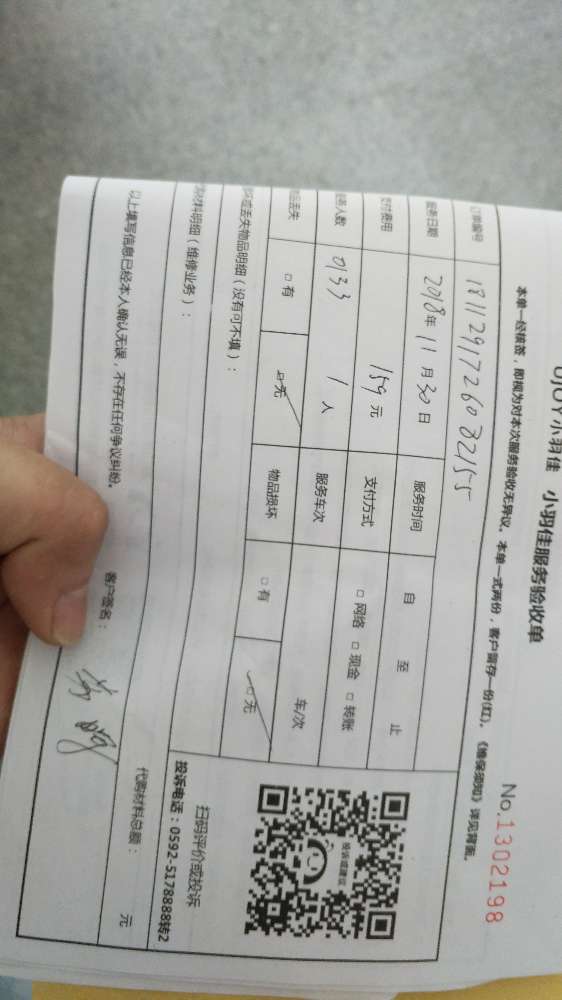 UJOY小羽佳 小羽佳服务验收单
No.1302198
本单一经核签，即视为对本次服务验收无异议。本单一式两份，客户留存一份(红)，《维保须知》详见背面。
订单编号 1811291726082155
服务日期 2018年11月30日 服务时间 自 至 止
支付费用 159元 支付方式 □网络 □现金 □转账
服务人数 0133 1人 服务车次 车/次
物品丢失 □有 □无 物品损坏 □有 □无
或丢失物品明细（没有可不填）：
材料明细（维修业务）：
代购材料总额： 元
以上填写信息已经本人确认无误，不存在任何争议纠纷。 客户签名：
投诉或建议
扫码评价或投诉
投诉电话：0592-5178888转2